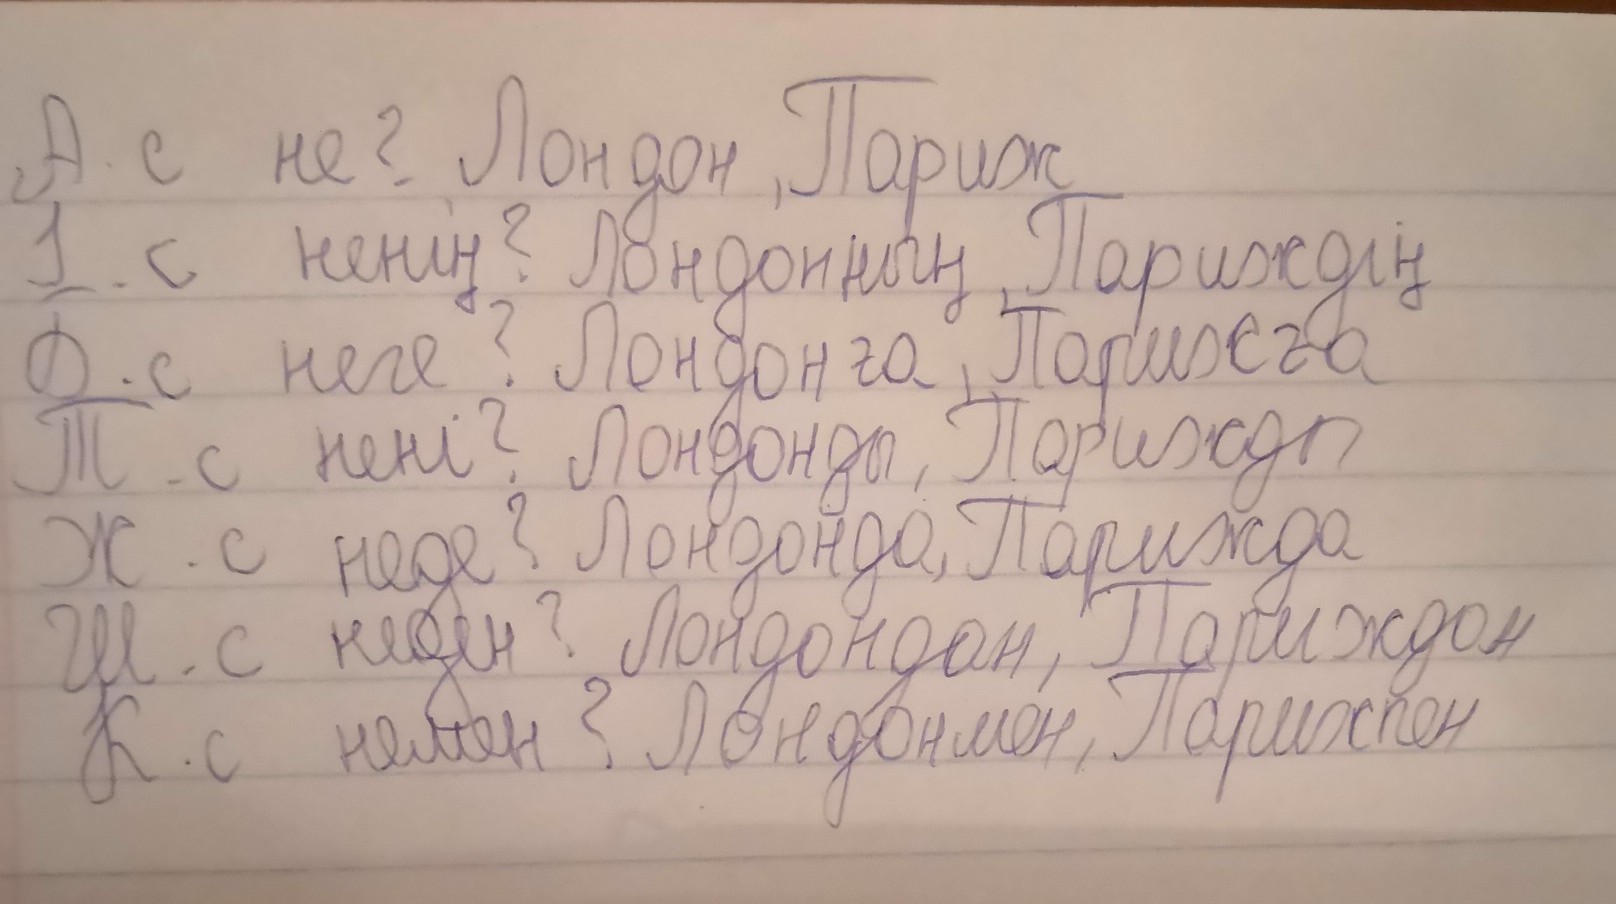 А.с не? Лондон, Париж
І.с ненің? Лондонның, Париждің
Б.с неге? Лондонға, Парижға
Т.с нені? Лондонды, Парижды
Ж.с неде? Лондонда, Парижда
Ш.с неден? Лондондан, Париждон
К.с немен? Лондонмен, Парижпен